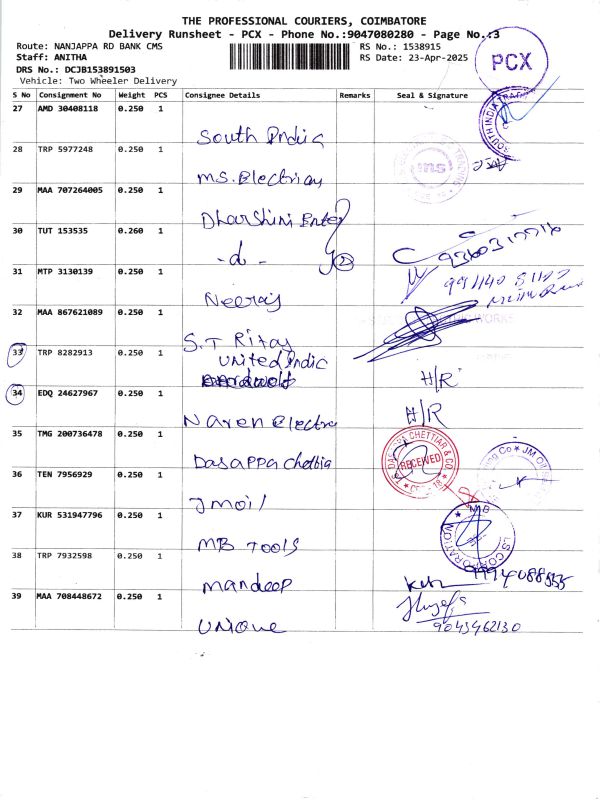 THE PROFESSIONAL COURIERS, COIMBATORE
Delivery Runsheet - PCX - Phone No.:9047080280 - Page No.:3
Route: NANJAPPA RD BANK CMS
RS No.: 1538915
Staff: ANITHA
RS Date: 23-Apr-2025
DRS No.: DCJB153891503
Vehicle: Two Wheeler Delivery
PCX
S No Consignment No Weight PCS Consignee Details Remarks Seal & Signature
27 AMD 30408118 0.250 1
South India
28 TRP 5977248 0.250 1
M.S. Electrical
29 MAA 707264005 0.250 1
Dharshini Enter
30 TUT 153535 0.260 1
-d-
31 MTP 3130139 0.250 1
Neeraj
32 MAA 867621089 0.250 1
S.T
33 TRP 8282913 0.250 1
United India
H/R
34 EDQ 24627967 0.250 1
Naren Electra
H/R
35 TMG 200736478 0.250 1
Dasappa Chettia
DASAPPA CHETTIAR & CO
RECEIVED
36 TEN 7956929 0.250 1
J moil
37 KUR 531947796 0.250 1
MB TOOLS
38 TRP 7932598 0.250 1
mandeep
39 MAA 708448672 0.250 1
UNIQUE
9043962130